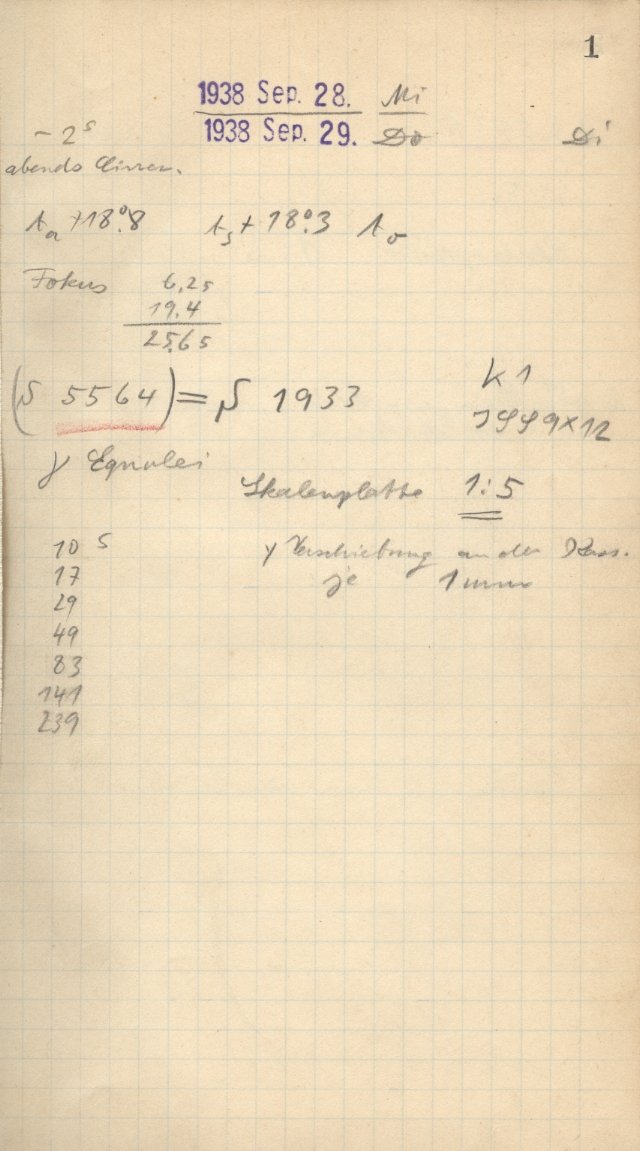 1
1938 Sep. 28. Mi
1938 Sep. 29. Do Di
- 2 s
abends Cirren.
t a + 18°.8 t s + 18°.3 t o
Fokus 6,25
19.4
25.65
(S 5564) = S 1933
K 1
9 x 12
γ Equulei
Skalenplatte 1:5
10 s
17
29
49
83
141
239
y Verschiebung an der Kass.
je 1 mm